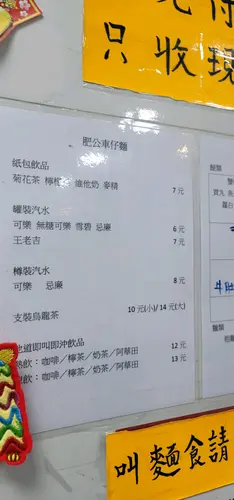 只收現
肥公車仔麵
紙包飲品
菊花茶 檸檬 維他奶 麥精 7 元
罐裝汽水
可樂 無糖可樂 雪碧 忌廉 6 元
王老吉 7 元
樽裝汽水
可樂 忌廉 8 元
支裝烏龍茶 10 元(小)/ 14 元(大)
即叫即沖飲品 12 元
飲：咖啡／檸茶／奶茶／阿華田 13 元
飲：咖啡／檸茶／奶茶／阿華田
叫麵食請